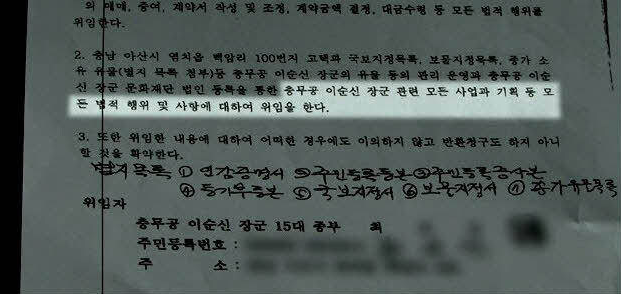 의 매매, 증여, 계약서 작성 및 조정, 계약금액 결정, 대금수령 등 모든 법적 행위를
위임한다.
2. 충남 아산시 염치읍 백암리 100번지 고택과 국보지정목록, 보물지정목록, 종가 소
유 유물(별지 목록 첨부)등 충무공 이순신 장군의 유물 등의 관리 운영과 충무공 이순
신 장군 문화재단 법인 등록을 통한 충무공 이순신 장군 관련 모든 사업과 기획 등 모
든 법적 행위 및 사항에 대하여 위임을 한다.
3. 또한 위임한 내용에 대하여 어떠한 경우에도 이의하지 않고 반환청구도 하지 아니
할 것을 확약한다.
별지목록 ① 인감증명서 ② 주민등록등본 ③ 주민등록증사본
④ 등기부등본 ⑤ 국보지정서 ⑥ 보물지정서 ⑦ 종가유물목록
위임자
충무공 이순신 장군 15대 종부 최
주민등록번호 :
주 소 :